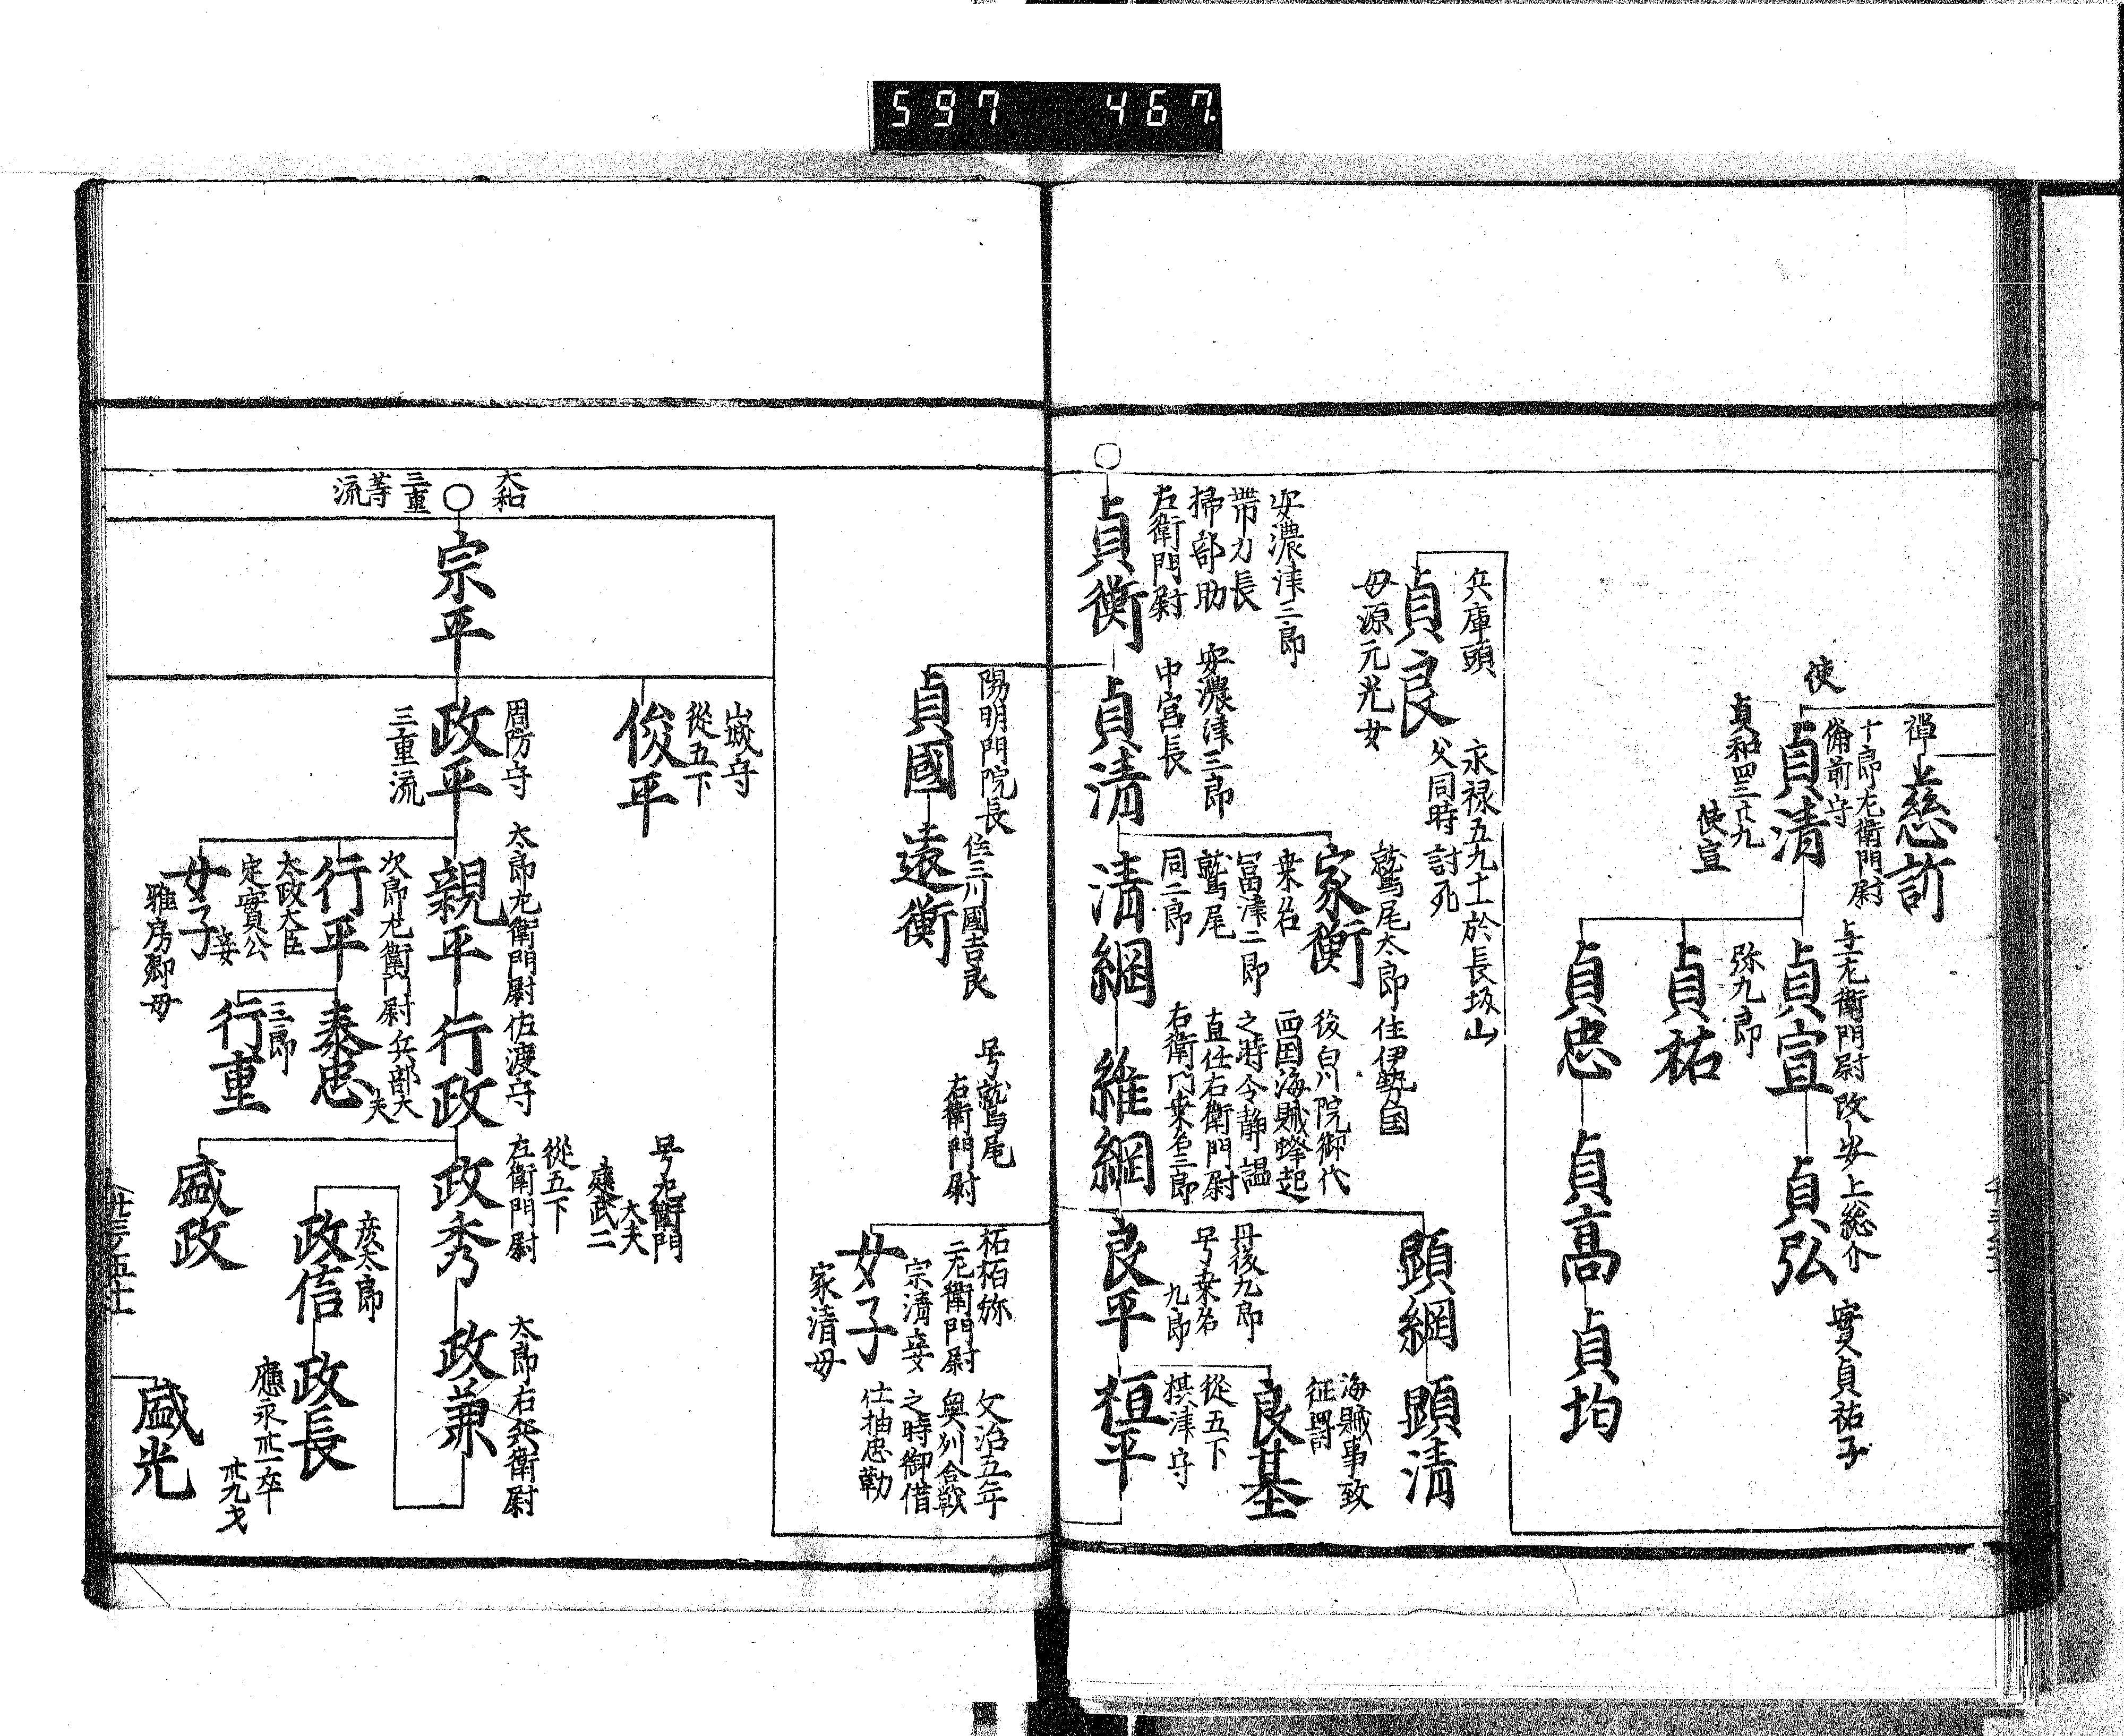 597 467
禅
慈訢
使
十郎左衛門尉
備前守
貞清
貞和四三十九
使宣
与一左衛門尉改安上総介
貞宣
弥九郎
貞祐
貞忠
貞弘
實貞祐子
貞高
貞均
兵庫頭
貞良
母源元光女
永禄五九十一於長坂山
父同時討死
安濃津三郎
帯刀長
掃部助
左衛門尉
貞衡
安濃津三郎
中宮長
貞清
鷲尾太郎住伊勢国
家衡
桑名
冨津二郎
鷲尾
同二郎
清綱
後白川院御代
西国海賊蜂起
之時令静謐
直任右衛門尉
右衛門桑名三郎
維綱
顕綱
顕清
丹後九郎
号桑名
九郎
良平
海賊事致
征罸
良基
從五下
摂津守
桓平
陽明門院長
貞國
住三川國吉良
遠衡
号鷲尾
右衛門尉
柘植弥
二左衛門尉
宗清妾
女子
家清母
文治五年
奥列合戦
之時御借
仕抽忠勤
大和
三重
等流
宗平
山城守
從五下
俊平
周防守
政平
三重流
太郎左衛門尉佐渡守
親平
次郎左衛門尉
行平
太政大臣
定實公
妾
女子
雅房卿母
行政
兵部大夫
泰忠
三郎
行重
号左衛門
大夫
建武二
從五下
左衛門尉
政秀
盛政
太郎右兵衛尉
政兼
彦太郎
政信
政長
應永卅一卒
卅九才
盛光